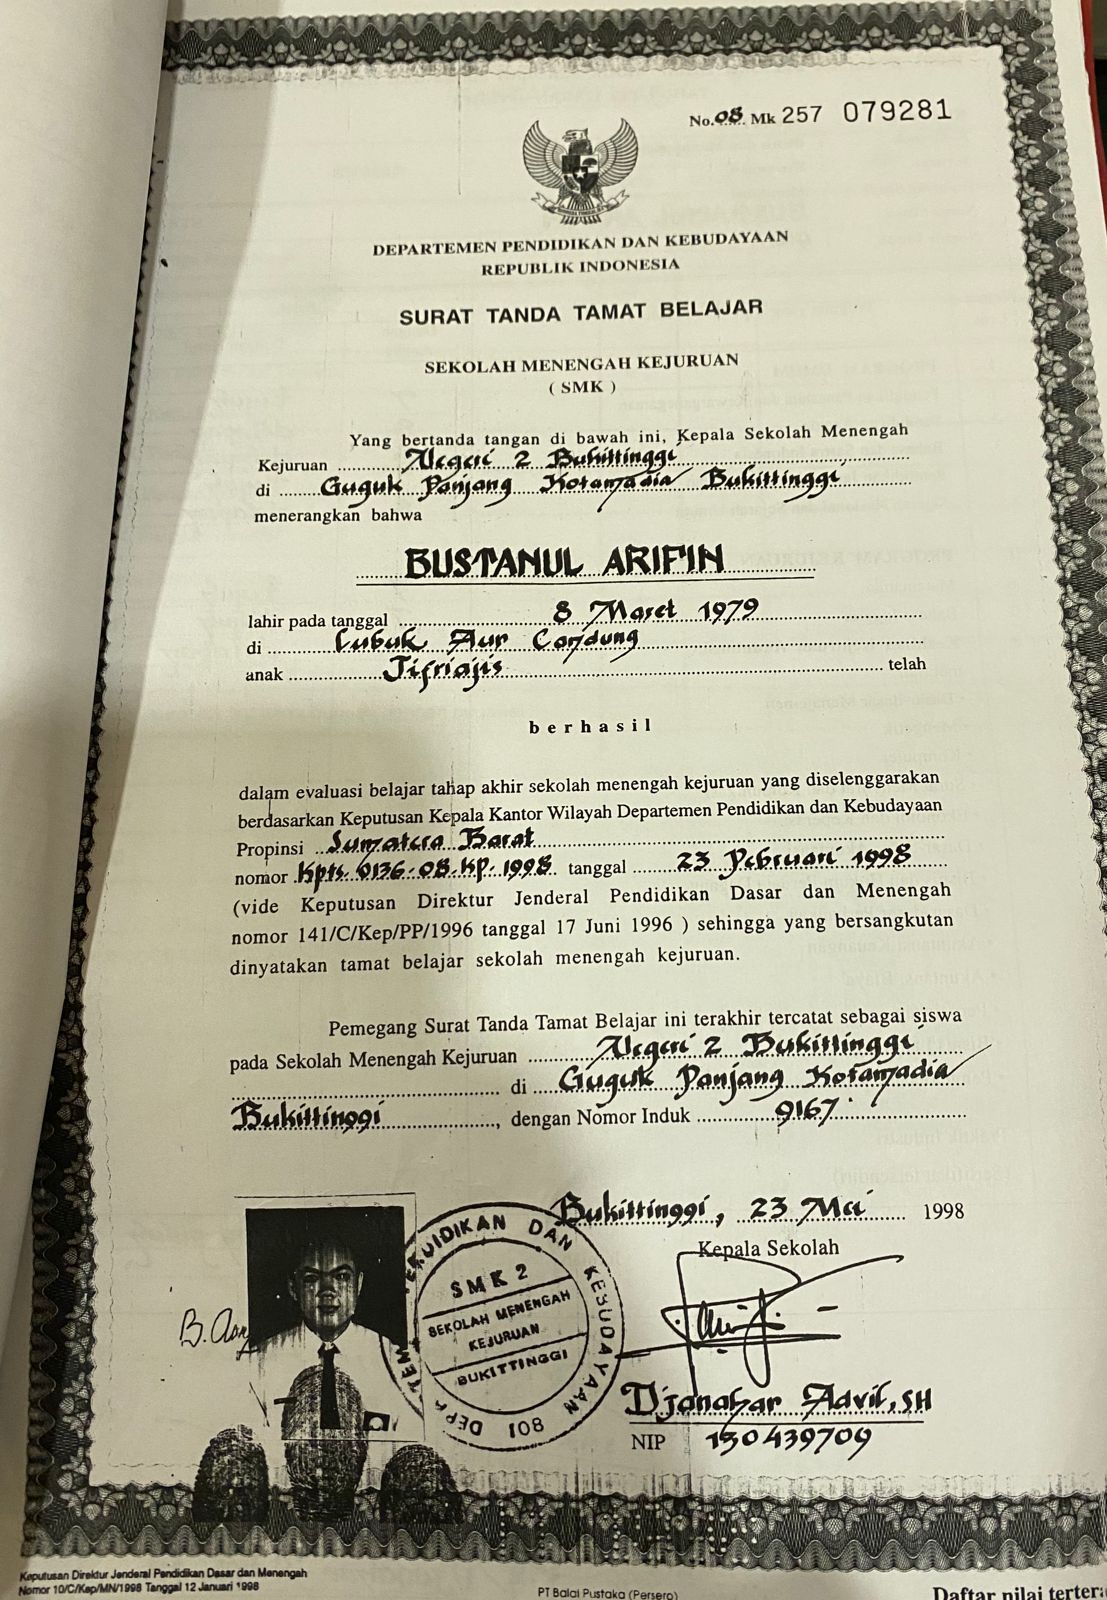 No. 08 Mk 257 079281
DEPARTEMEN PENDIDIKAN DAN KEBUDAYAAN
REPUBLIK INDONESIA
SURAT TANDA TAMAT BELAJAR
SEKOLAH MENENGAH KEJURUAN
( SMK )
Yang bertanda tangan di bawah ini, Kepala Sekolah Menengah
Kejuruan Negeri 2 Bukittinggi
di Guguk Panjang Kotamadia Bukittinggi
menerangkan bahwa
BUSTANUL ARIFIN
lahir pada tanggal 8 Maret 1979
di Lubuk Aur Candung
anak Jifriajis telah
berhasil
dalam evaluasi belajar tahap akhir sekolah menengah kejuruan yang diselenggarakan
berdasarkan Keputusan Kepala Kantor Wilayah Departemen Pendidikan dan Kebudayaan
Propinsi Sumatera Barat
nomor Kpts. 0136.08.KP.1998 tanggal 23 Pebruari 1998
(vide Keputusan Direktur Jenderal Pendidikan Dasar dan Menengah
nomor 141/C/Kep/PP/1996 tanggal 17 Juni 1996 ) sehingga yang bersangkutan
dinyatakan tamat belajar sekolah menengah kejuruan.
Pemegang Surat Tanda Tamat Belajar ini terakhir tercatat sebagai siswa
pada Sekolah Menengah Kejuruan Negeri 2 Bukittinggi
di Guguk Panjang Kotamadia
Bukittinggi, dengan Nomor Induk 9167
Bukittinggi, 23 Mei 1998
Kepala Sekolah
DAN KEBUDAYAAN
SMK 2
SEKOLAH MENENGAH
KEJURUAN
BUKITTINGGI
108
Djanahar Advil, SH
NIP 130439709
Keputusan Direktur Jenderal Pendidikan Dasar dan Menengah
Nomor 10/C/Kep/MN/1998 Tanggal 12 Januari 1998
PT Balai Pustaka (Persero)
Daftar nilai tertera